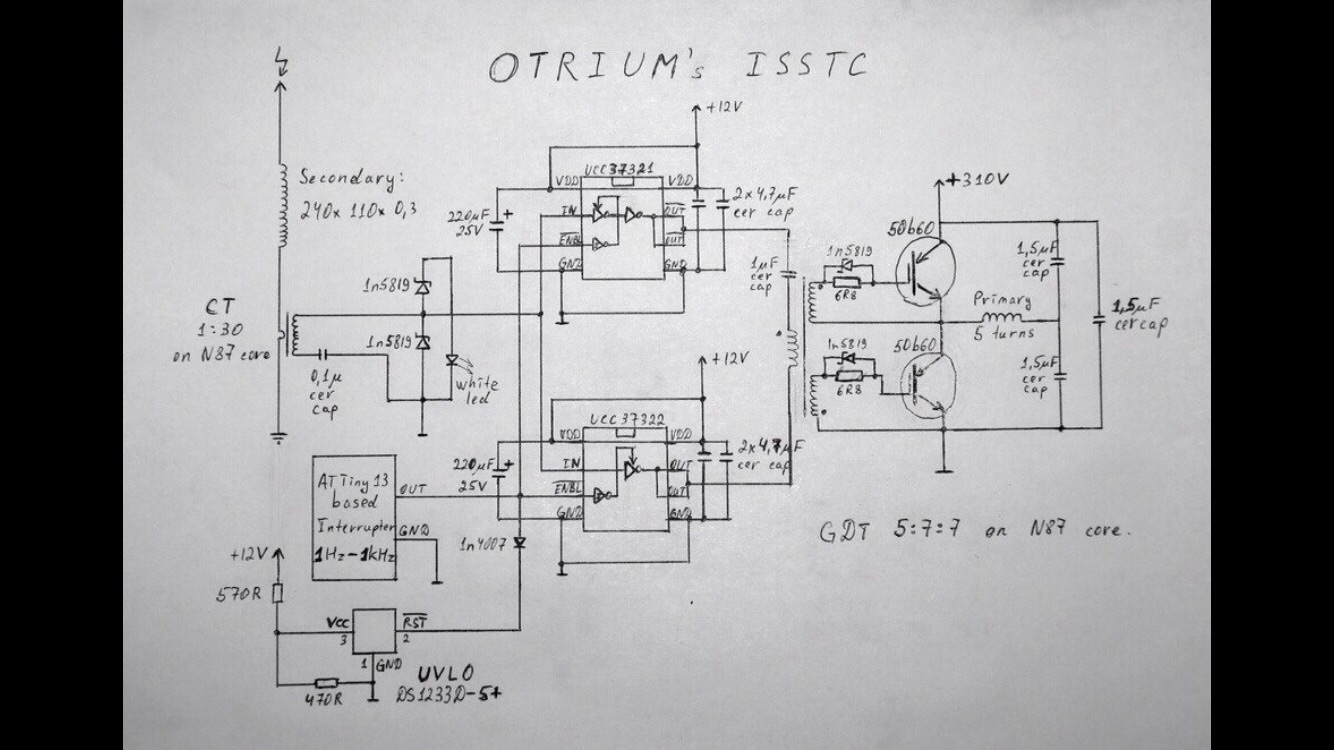 OTRIUM's ISSTC
+12V
Secondary:
240x 110x 0,3
UCC37321
VDD
VDD
IN
OUT
ENBL
OUT
GND
GND
220μF +
25V
2x4,7μF
cer cap
+310V
50b60
1n5819
6R8
1μF
cer
cap
1,5μF
cer
cap
Primary
5 turns
1,5μF
cer cap
CT
1:30
on N87 core
1n5819
1n5819
0,1μ
cer
cap
white
led
+12V
50b60
1n5819
6R8
1,5μF
cer
cap
UCC37322
VDD
VDD
IN
OUT
ENBL
OUT
GND
GND
220μF +
25V
2x4,7μF
cer cap
ATTiny 13
based
Interrupter
1Hz-1kHz
OUT
GND
1n4007
GDT 5:7:7 on N87 core.
+12V
570R
Vcc
3
RST
2
1 GND
470R
UVLO
DS1233D-5+